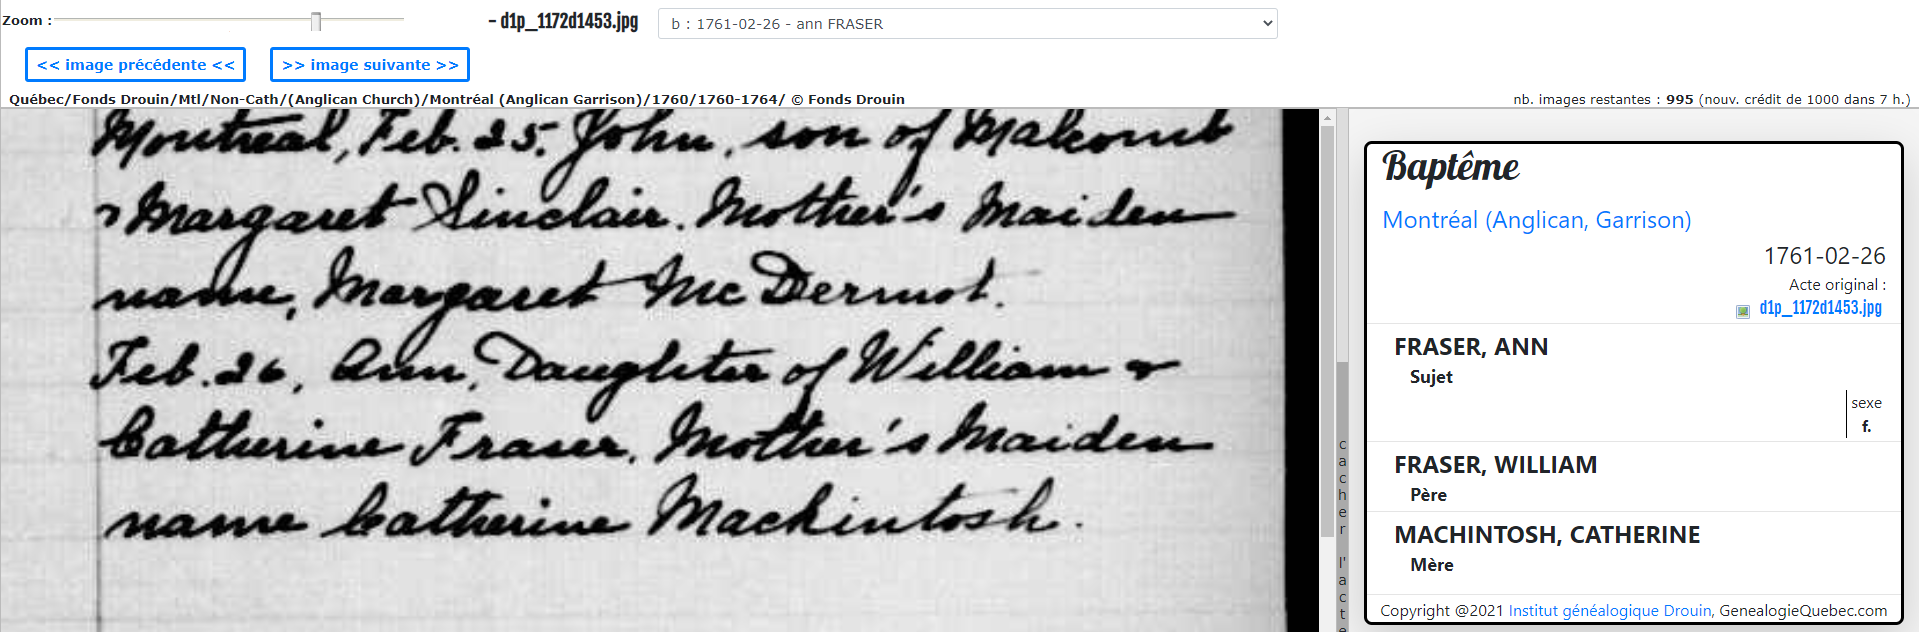 Zoom :
– d1p_1172d1453.jpg
b : 1761-02-26 - ann FRASER
<< image précédente <<
>> image suivante >>
Québec/Fonds Drouin/Mtl/Non-Cath/(Anglican Church)/Montréal (Anglican Garrison)/1760/1760-1764/ © Fonds Drouin
nb. images restantes : 995 (nouv. crédit de 1000 dans 7 h.)
Montreal, Feb. 25. John, son of Malcomb
& Margaret Sinclair. Mother's Maiden
name, Margaret McDermot.
Feb. 26, Ann, Daughter of William &
Catherine Fraser. Mother's Maiden
name Catherine Mackintosh.
cacher l'acte
Baptême
Montréal (Anglican, Garrison)
1761-02-26
Acte original :
d1p_1172d1453.jpg
FRASER, ANN
Sujet
sexe
f.
FRASER, WILLIAM
Père
MACHINTOSH, CATHERINE
Mère
Copyright @2021 Institut généalogique Drouin, GenealogieQuebec.com